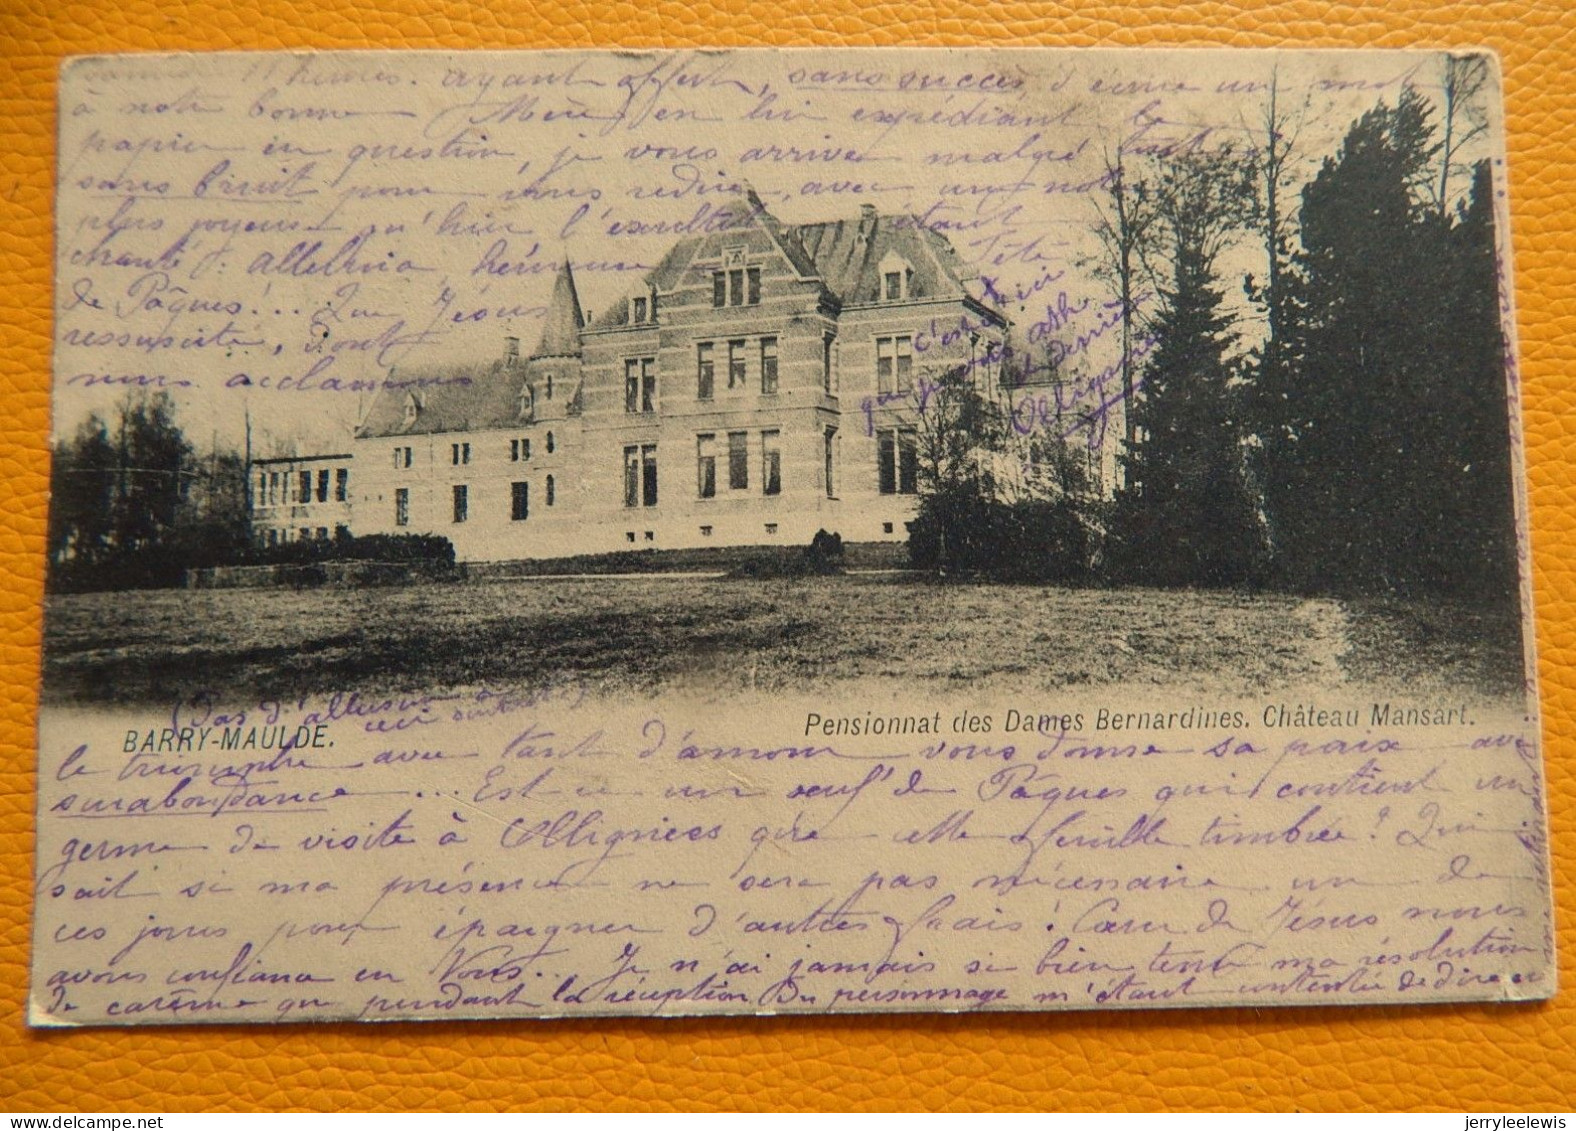 Samedi 11 heures. Ayant offert, sans succès, d'écrire un mot
à notre bonne Mère en lui expédiant le
papier en question, je vous arrive malgré tout
sans bruit pour vous redire, avec une note
plus joyeuse qu'hier l'exultet étant
chanté : alleluia, heureuse fête
de Pâques!... Que Jésus
ressuscité, dont
nous acclamons
c'est ici
que je vous
derrière
BARRY-MAULDE.
Pensionnat des Dames Bernardines. Château Mansart.
(Pas d'allusion à
ceci surtout)
le triomphe avec tant d'amour vous donne sa paix avec
surabondance... Est-ce un œuf de Pâques qui contient un
germe de visite à Ollignies que cette feuille timbrée? Qui
sait si ma présence ne sera pas nécessaire un de
ces jours pour épargner d'autres frais! Cœur de Jésus nous
avons confiance en Vous... Je n'ai jamais si bien tenu ma résolution
de carême que pendant la réception du personnage m'étant contentée de dire
jerryleelewis